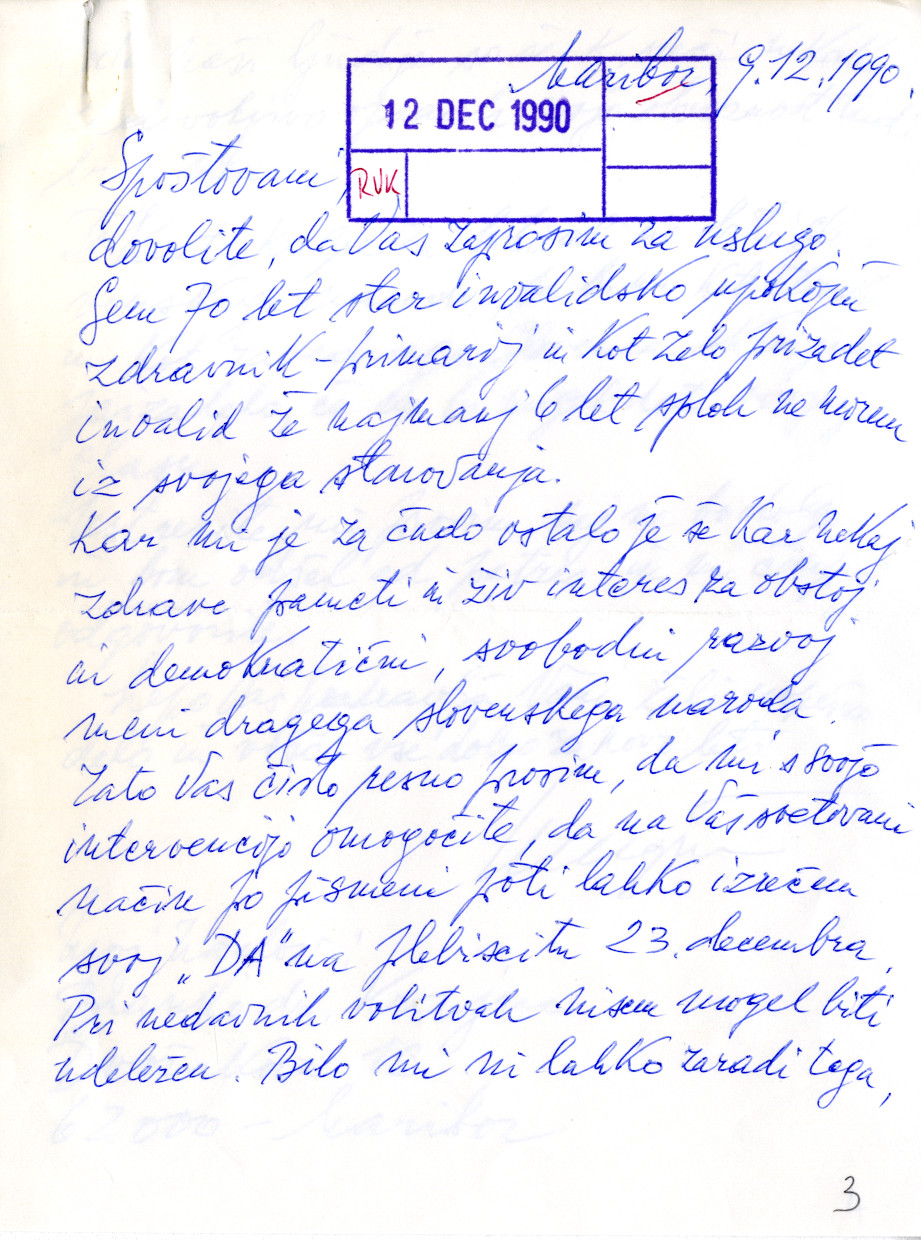 Maribor, 9.12.1990.
12 DEC 1990
RVK
Spoštovani,
dovolite, da Vas zaprosim za uslugo.
Sem 70 let star invalidsko upokojen
zdravnik-primarij in kot zelo prizadet
invalid že najmanj 6 let sploh ne morem
iz svojega stanovanja.
Kar mi je za čudo ostalo je še kar nekaj
zdrave pameti in živ interes za obstoj
in demokratični, svobodni razvoj
meni dragega slovenskega naroda.
Zato Vas čisto resno prosim, da mi s svojo
intervencijo omogočite, da na Vaš svetovani
način po pismeni poti lahko izrečem
svoj „DA“ na plebiscitu 23. decembra.
Pri nedavnih volitvah nisem mogel biti
udeležen. Bilo mi ni lahko zaradi tega,
3